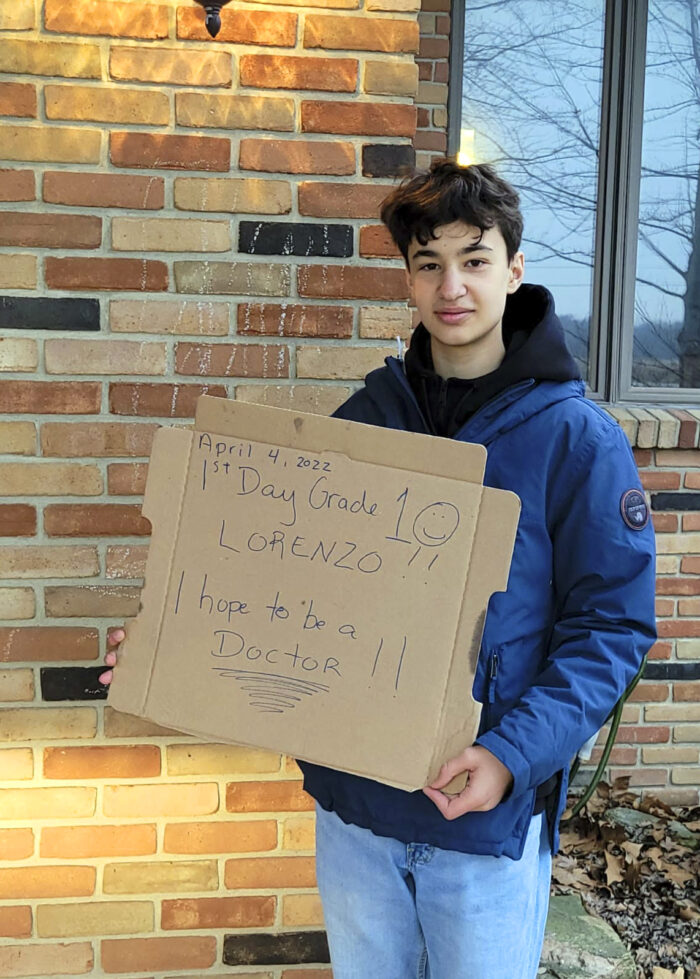 April 4, 2022
1st Day Grade 10
LORENZO !!
I hope to be a
DOCTOR !!